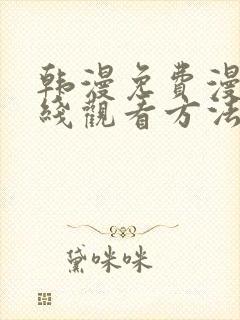 韩漫免费漫
线觀看方法
黛咪咪